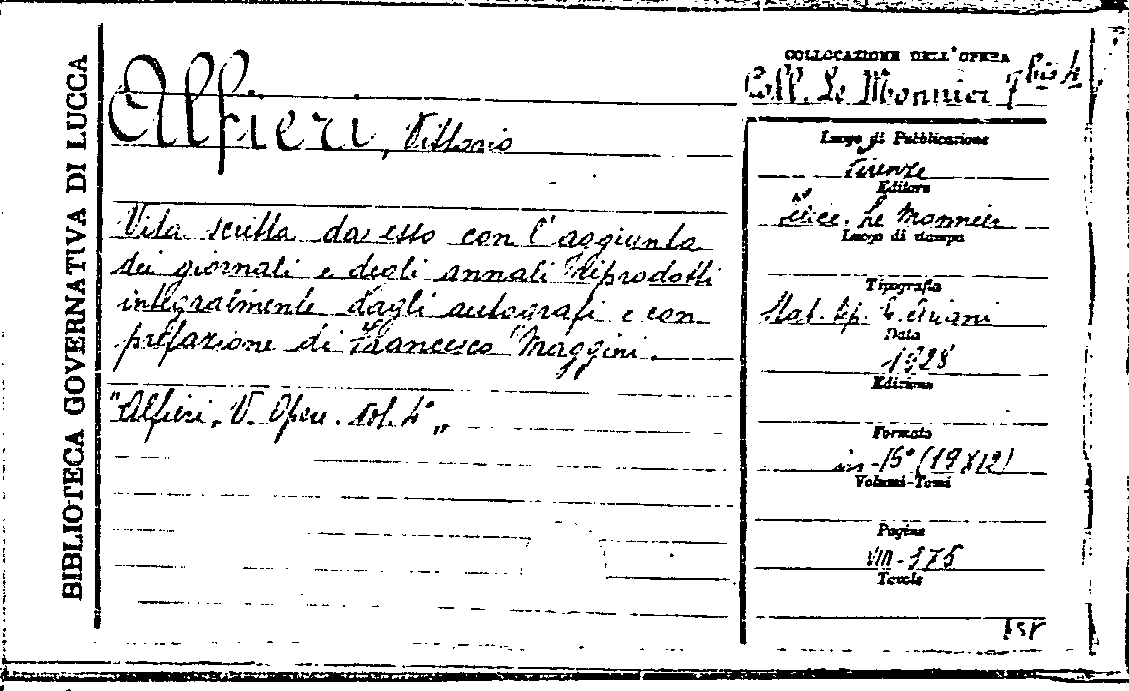 BIBLIOTECA GOVERNATIVA DI LUCCA
COLLOCAZIONE DELL'OPERA
Coll. Le Monnier 7 bis 4
Alfieri, Vittorio
Vita scritta da esso con l'aggiunta
dei giornali e degli annali riprodotti
integralmente dagli autografi e con
prefazione di Francesco Maggini.
"Alfieri, V. Opere. Vol. 4°"
Luogo di Pubblicazione
Firenze
Editore
Felice Le Monnier
Luogo di stampa
Tipografia
Stab. tip. E. Ariani
Data
1928
Edizione
Formato
in-15° (19x12)
Volumi-Tomi
Pagine
VIII-375
Tavole